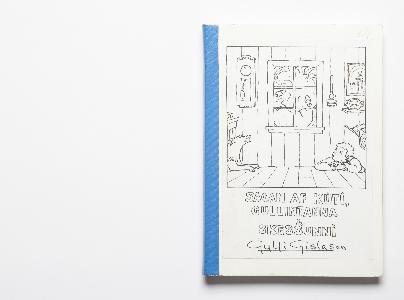 SAGAN AF KUTI,
GULLINTANNA
&
SKESSUNNI
Gylfi Gíslason